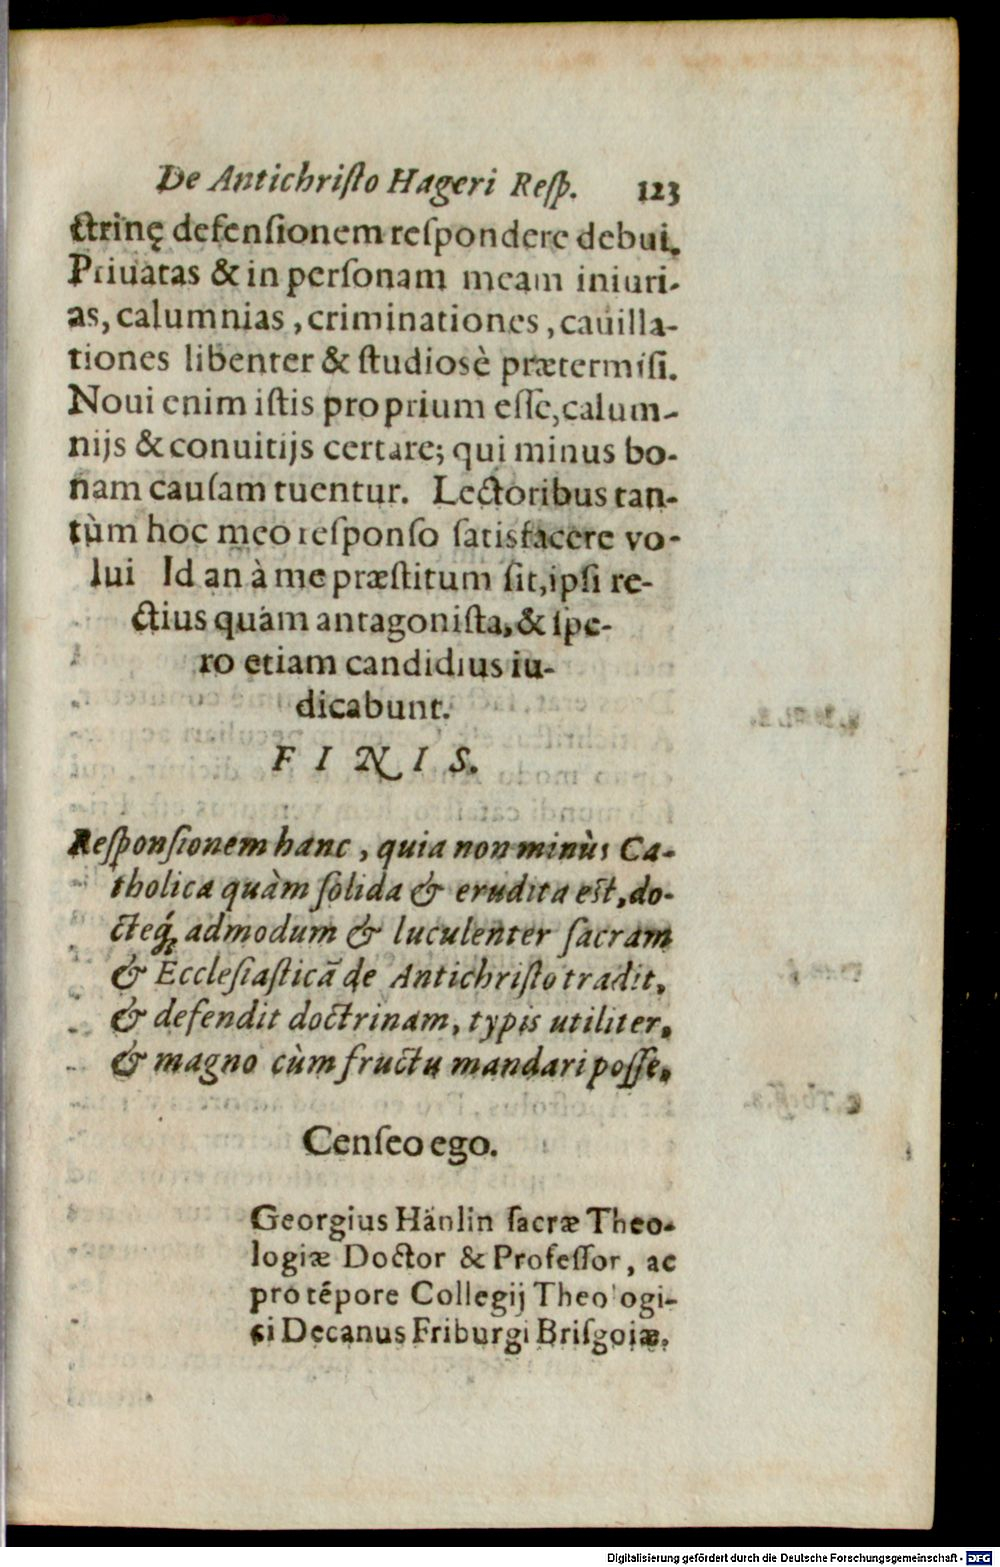 De Antichriſto Hageri Reſp. 123
ctrinę defenſionem reſpondere debui.
Priuatas & in perſonam meam iniuri-
as, calumnias, criminationes, cauilla-
tiones libenter & ſtudiosè prætermiſi.
Noui enim iſtis proprium eſſe, calum-
nijs & conuitijs certare; qui minus bo-
nam cauſam tuentur. Lectoribus tan-
tùm hoc meo reſponſo satisfacere vo-
lui Id an à me præſtitum ſit, ipſi re-
ctius quàm antagoniſta, & ſpe-
ro etiam candidius iu-
dicabunt.
F I N I S.
Reſponſionem hanc, quia non minùs Ca-
tholica quàm ſolida & erudita eſt, do-
cteq́ꝫ admodum & luculenter ſacram
& Eccleſiaſticã de Antichriſto tradit,
& defendit doctrinam, typis utiliter,
& magno cùm fructu mandari poſſe,
Cenſeo ego.
Georgius Hänlin ſacræ Theo-
logiæ Doctor & Profeſſor, ac
pro tẽpore Collegij Theologi-
ci Decanus Friburgi Briſgoiæ.
Digitalisierung gefördert durch die Deutsche Forschungsgemeinschaft - DFG